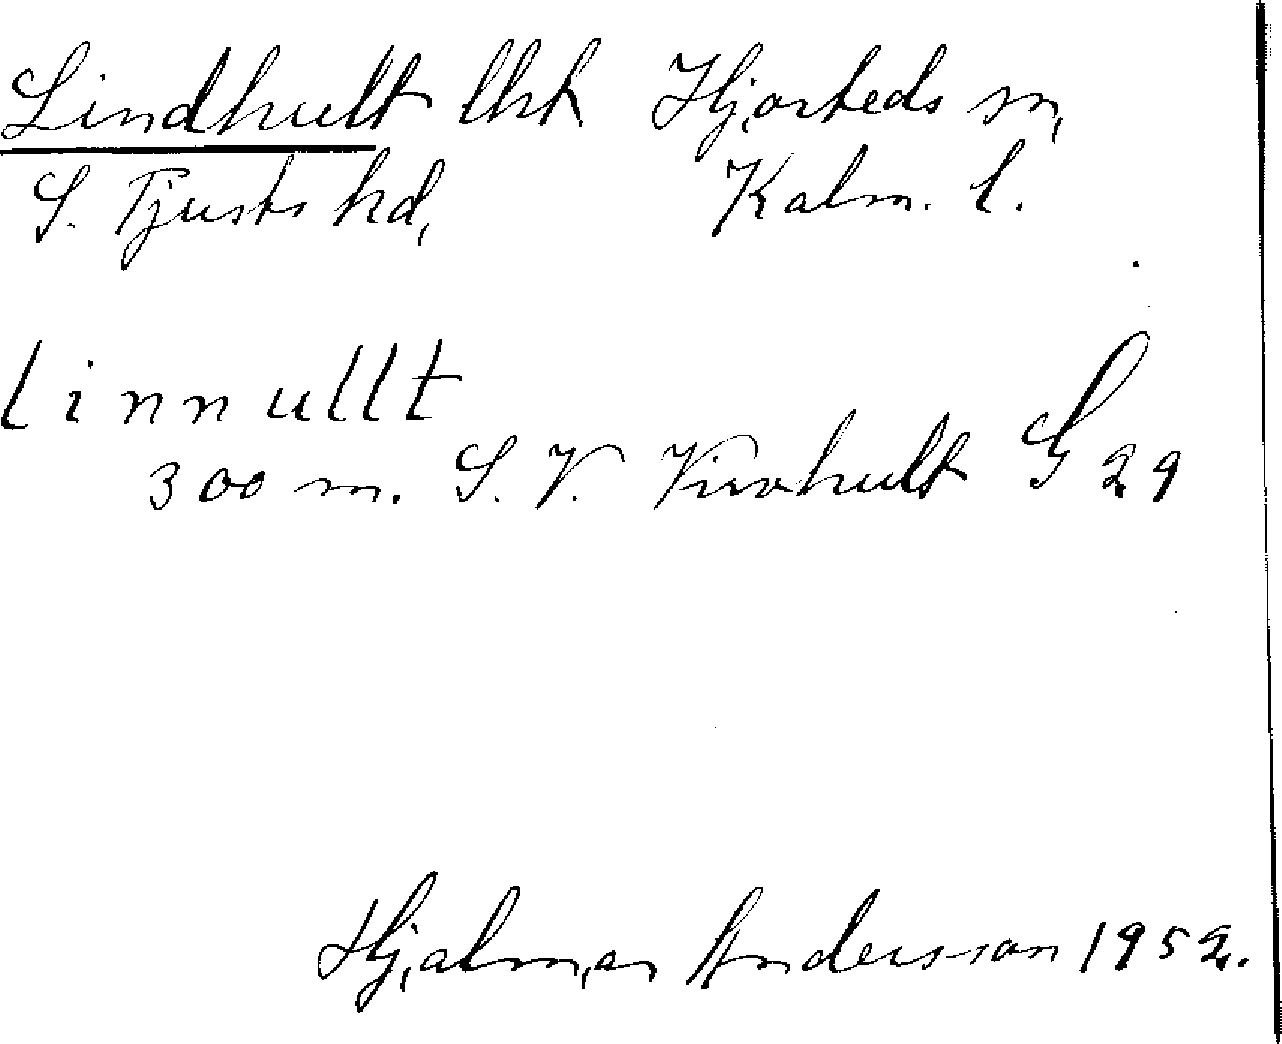 Lindhult lht Hjorteds sn,
S. Tjusts hd, Kalm. l.
linnullt
300 m. S. V. Virohult G 29
Hjalmar Andersson 1952.